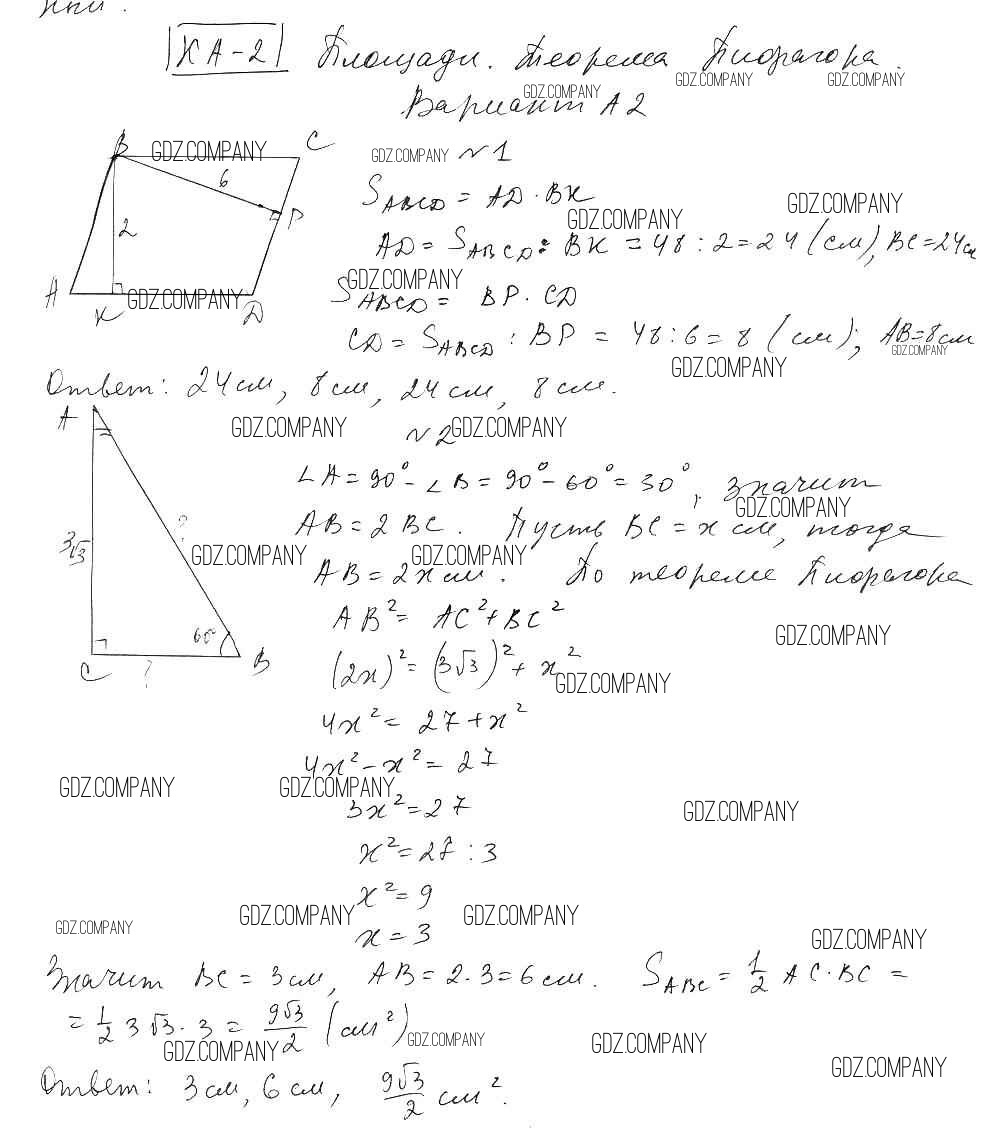 КА-2 Площади. Теорема Пифагора.
GDZ.COMPANY GDZ.COMPANY GDZ.COMPANY
Вариант А2
B GDZ.COMPANY C
GDZ.COMPANY №1
6
S_ABCD = AD · BK
GDZ.COMPANY GDZ.COMPANY
P
2
AD = S_ABCD : BK = 48 : 2 = 24 (см), BC = 24 см
GDZ.COMPANY
A K GDZ.COMPANY D
S_ABCD = BP · CD
CD = S_ABCD : BP = 48 : 6 = 8 (см); AB = 8 см
GDZ.COMPANY
GDZ.COMPANY
Ответ: 24 см, 8 см, 24 см, 8 см.
A
GDZ.COMPANY №2 GDZ.COMPANY
∠A = 90° - ∠B = 90° - 60° = 30°, значит
GDZ.COMPANY
AB = 2 BC. Пусть BC = x см, тогда
3√3 ?
GDZ.COMPANY GDZ.COMPANY
AB = 2x см. По теореме Пифагора
AB² = AC² + BC²
60°
GDZ.COMPANY
C ? B
(2x)² = (3√3)² + x²
GDZ.COMPANY
4x² = 27 + x²
4x² - x² = 27
GDZ.COMPANY GDZ.COMPANY
3x² = 27
GDZ.COMPANY
x² = 27 : 3
x² = 9
GDZ.COMPANY GDZ.COMPANY GDZ.COMPANY
x = 3
GDZ.COMPANY
Значит BC = 3 см, AB = 2 · 3 = 6 см. S_ABC = 1/2 AC · BC =
= 1/2 3√3 · 3 = 9√3/2 (см²)
GDZ.COMPANY GDZ.COMPANY GDZ.COMPANY
GDZ.COMPANY
Ответ: 3 см, 6 см, 9√3/2 см².